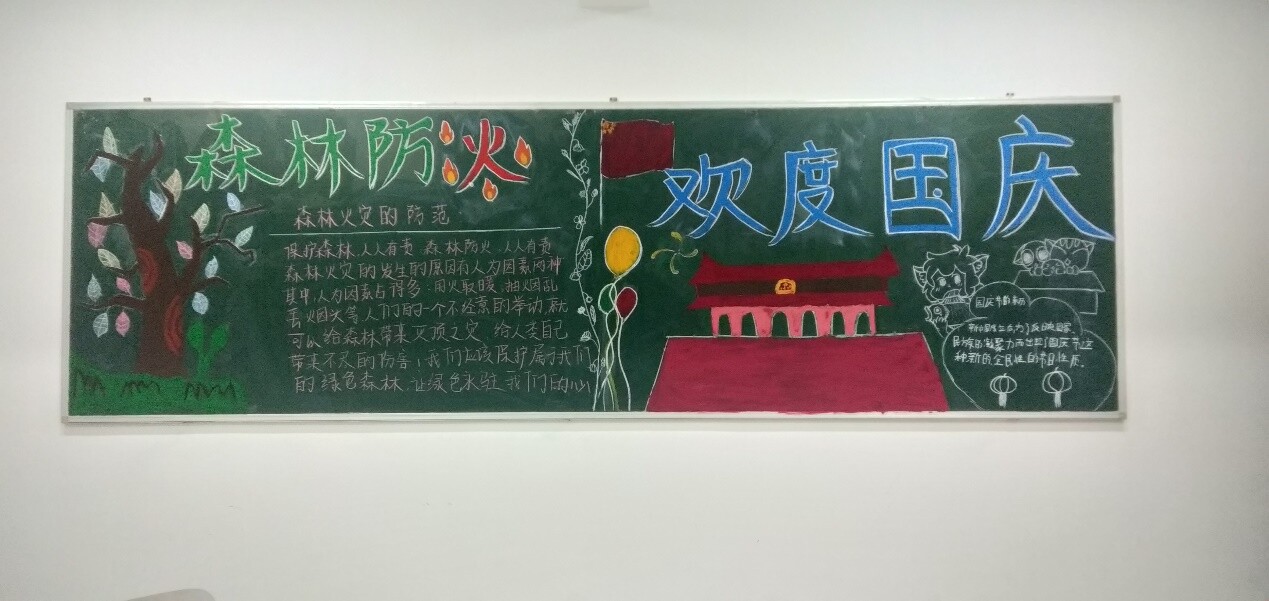 森林防火
森林火灾的防范
保护森林,人人有责 森林防火,人人有责
森林火灾的发生的原因有人为因素两种
其中,人为因素占得多:用火取暖,抽烟乱
丢烟头等,人们的一个不经意的举动,就
可以给森林带来灭顶之灾 给人类自己
带来不尽的伤害,我们应该保护属于我们
的绿色森林.让绿色永驻我们的心
欢度国庆
国庆
民族的凝聚力而出现国庆节这
种新的全民性的节日性质.